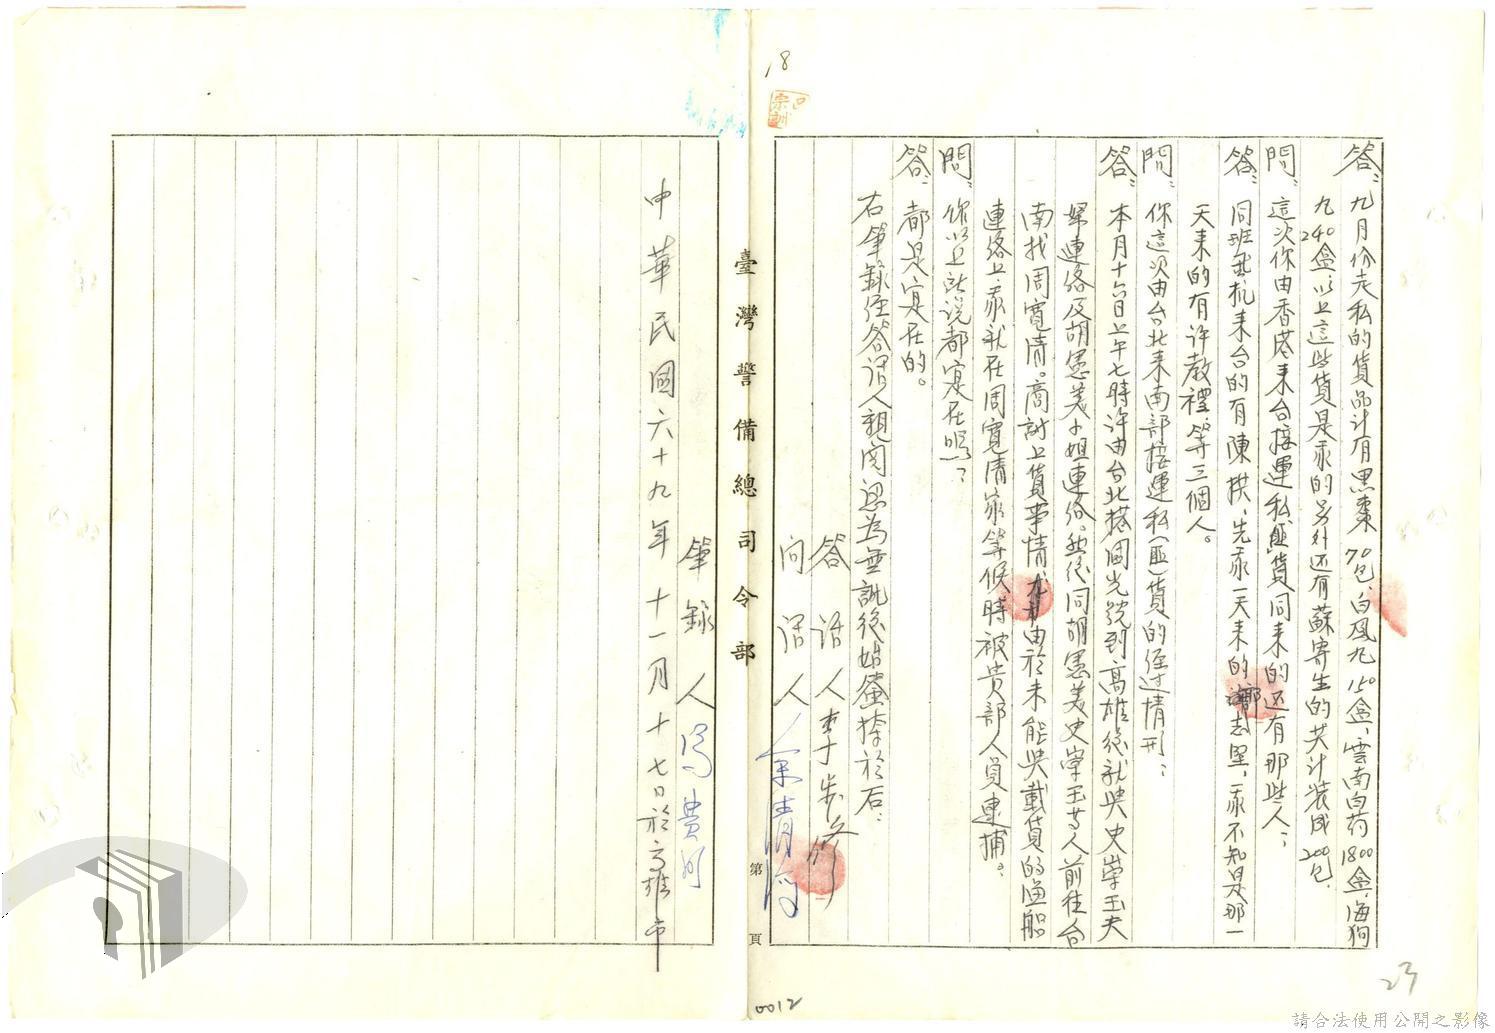 18
答：九月份走私的貨品計有黑棗70包、白鳳丸150盒、雲南白药1800盒海狗
九240盒以上這些貨是我的另外还有蘇寄生的共计裝成200包.
問：這次你由香港來台接運私匪貨同来的还有那些人：
答：同班飛机来台的有陳拱、先我一天来的鄭志堅，我不知是那一
天来的有许教禮等三個人。
問：你這次由台北来南部接運私(匪)貨的经过情形：
答：本月十六日上午七時许由台北搭國光號到高雄後就與史崇玉夫
婦連络及胡憲美小姐連络。然後同胡憲美史崇玉等人前往台
南找周寬清。商討上貨事情由於未能與載貨的漁船
連络上.我就在周寬清家等候時被贵部人員逮捕。
問：你以上所说都实在嗎？
答：都是实在的。
右筆録经答话人親阅認為無訛後始簽捺於后：
答話人李
问話人余
第 頁
臺灣警備總司令部
筆録人馮
中華民國六十九年十一月十七日於高雄市
0012
23
請合法使用公開之影像